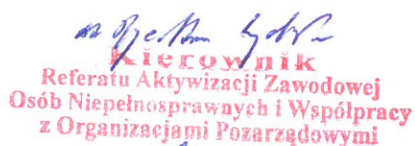 Kierownik
Referatu Aktywizacji Zawodowej
Osób Niepełnosprawnych i Współpracy
z Organizacjami Pozarządowymi